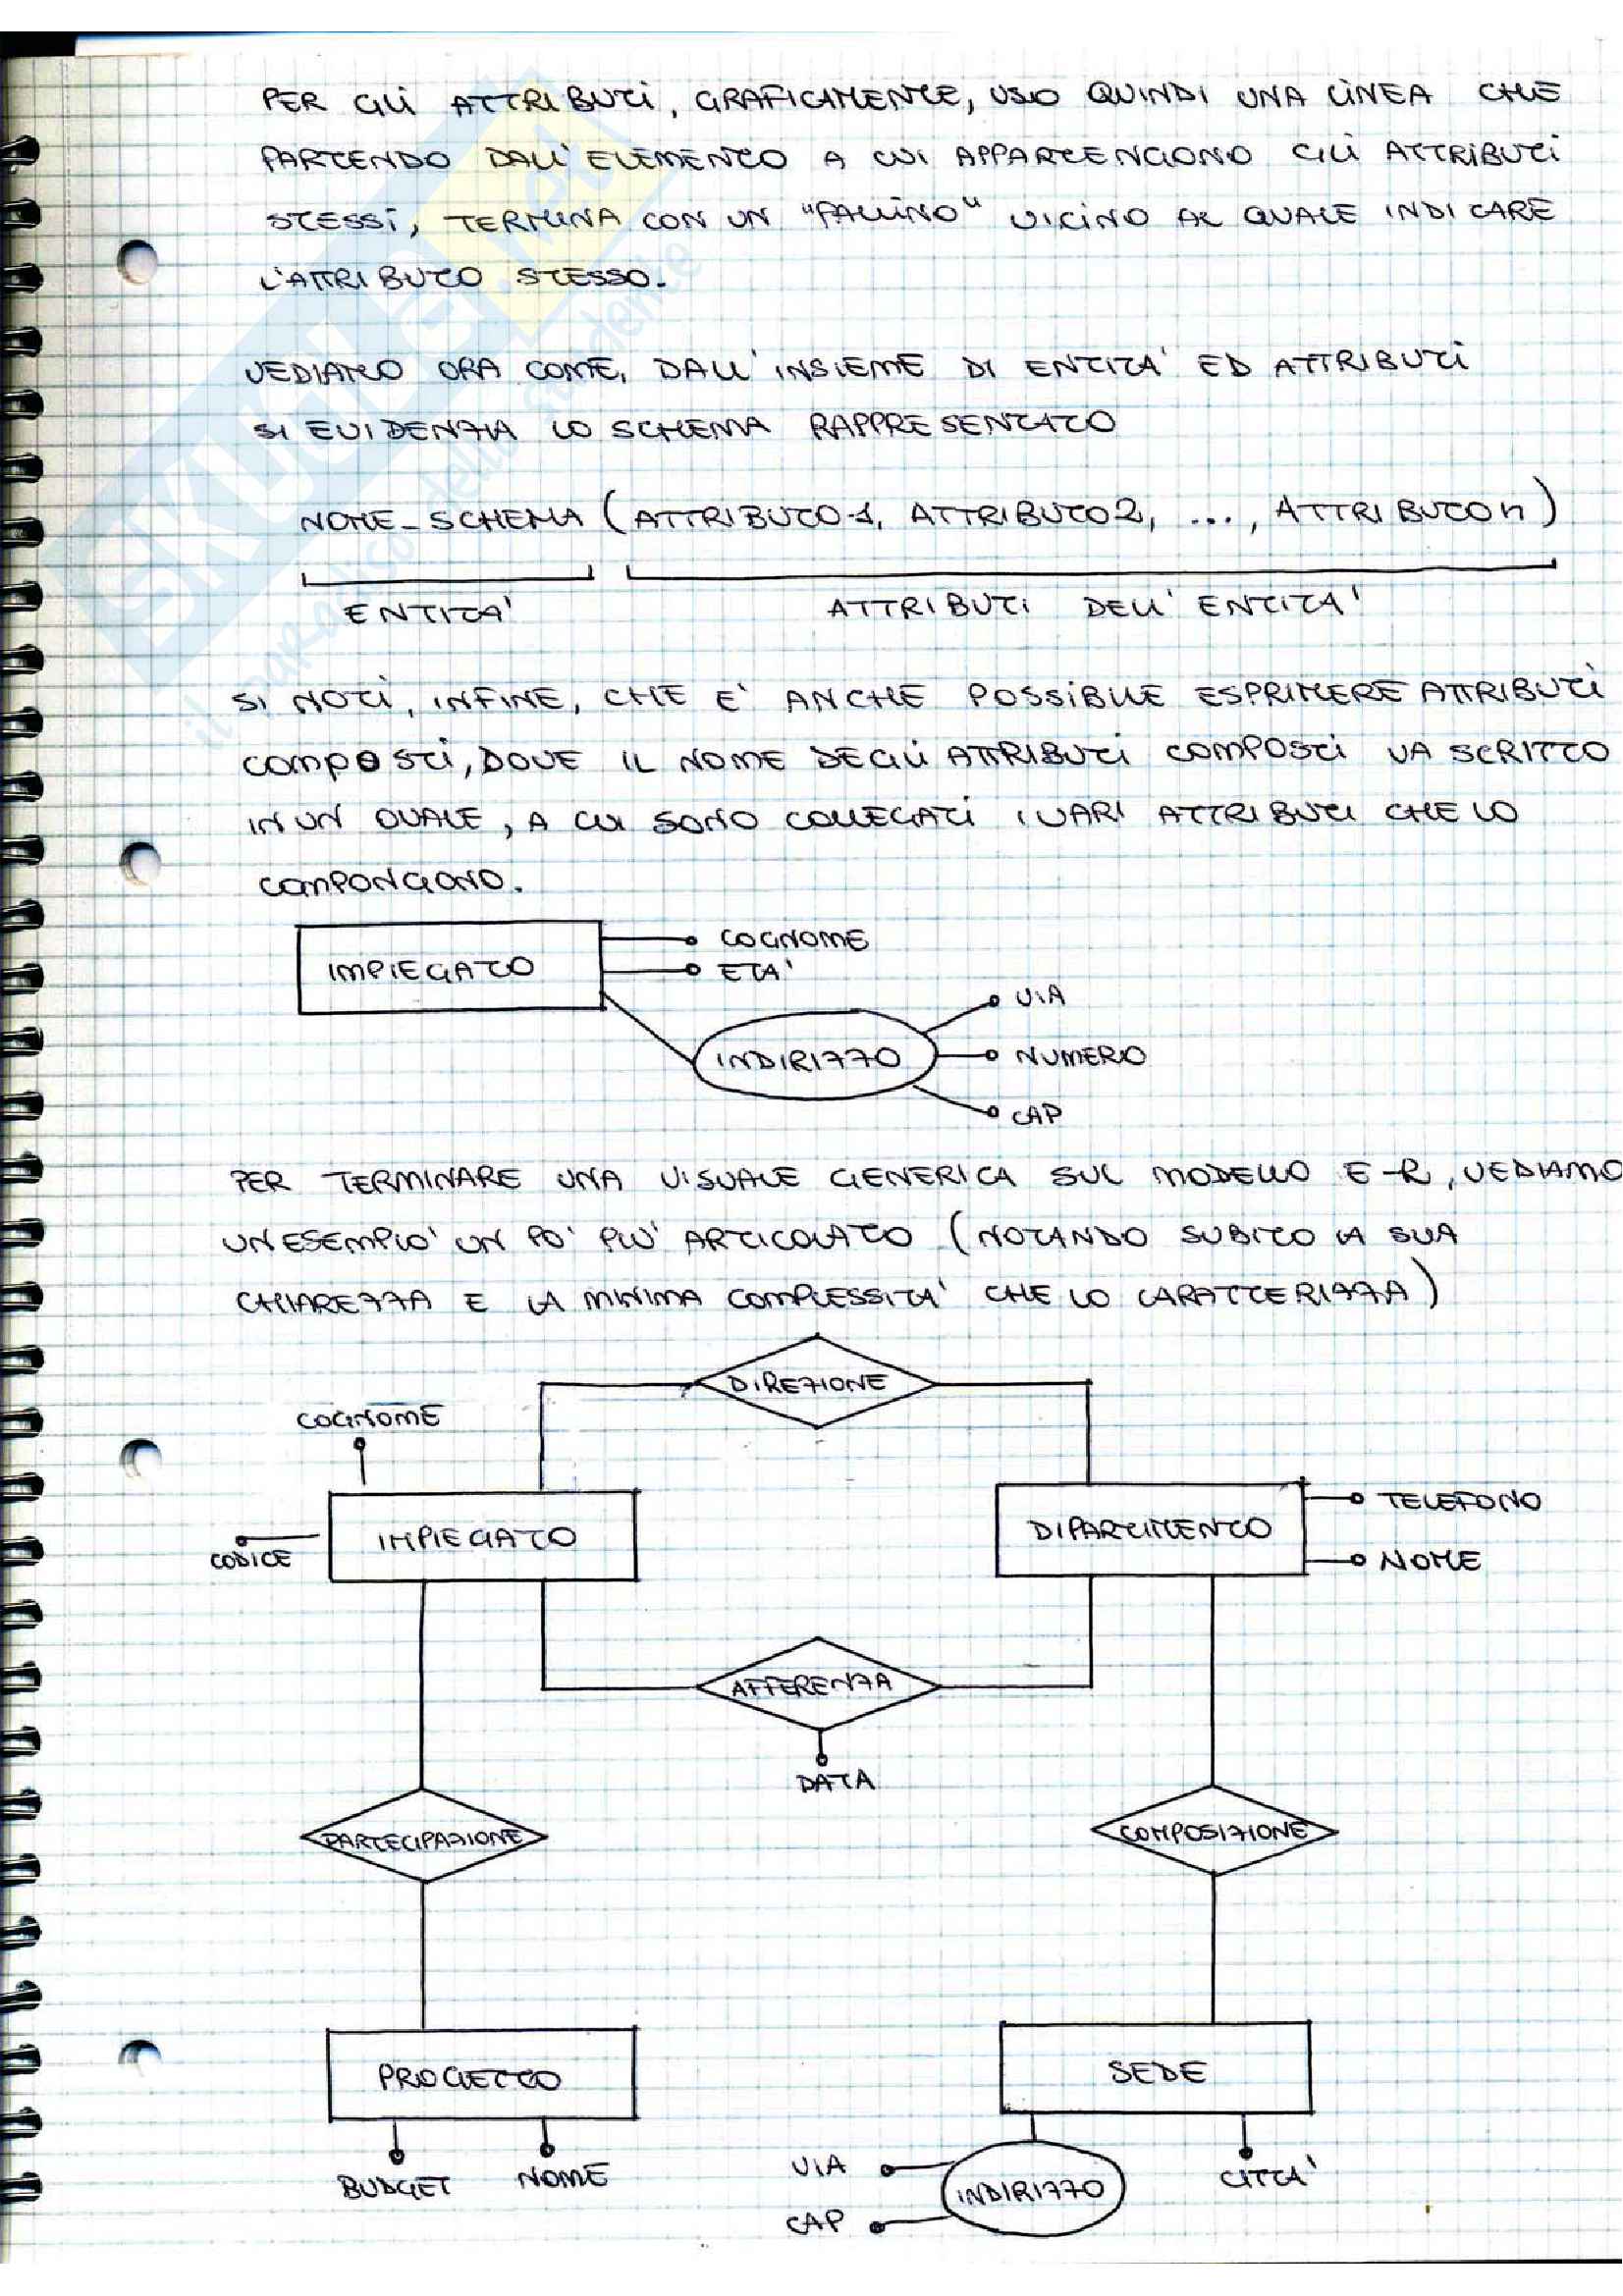 PER GLI ATTRIBUTI, GRAFICAMENTE, USO QUINDI UNA LINEA CHE
PARTENDO DALL'ELEMENTO A CUI APPARTENGONO GLI ATTRIBUTI
STESSI, TERMINA CON UN "PALLINO" VICINO AL QUALE INDICARE
L'ATTRIBUTO STESSO.
VEDIAMO ORA COME, DALL'INSIEME DI ENTITA' ED ATTRIBUTI
SI EVIDENZIA LO SCHEMA RAPPRESENTATO
NOME_SCHEMA (ATTRIBUTO1, ATTRIBUTO2, ..., ATTRIBUTOn)
ENTITA' ATTRIBUTI DELL'ENTITA'
SI NOTI, INFINE, CHE E' ANCHE POSSIBILE ESPRIMERE ATTRIBUTI
COMPOSTI, DOVE IL NOME DEGLI ATTRIBUTI COMPOSTI VA SCRITTO
IN UN OVALE, A CUI SONO COLLEGATI I VARI ATTRIBUTI CHE LO
COMPONGONO.
COGNOME
IMPIEGATO
ETA'
VIA
INDIRIZZO
NUMERO
CAP
PER TERMINARE UNA VISUALE GENERICA SUL MODELLO E-R, VEDIAMO
UN ESEMPIO' UN PO' PIU' ARTICOLATO (NOTANDO SUBITO LA SUA
CHIAREZZA E LA MINIMA COMPLESSITA' CHE LO CARATTERIZZA)
DIREZIONE
COGNOME
TELEFONO
IMPIEGATO
DIPARTIMENTO
CODICE
NOME
AFFERENZA
DATA
PARTECIPAZIONE
COMPOSIZIONE
PROGETTO
SEDE
BUDGET
NOME
VIA
INDIRIZZO
CITTA'
CAP
SKUOLA.net
il paradiso dello studente